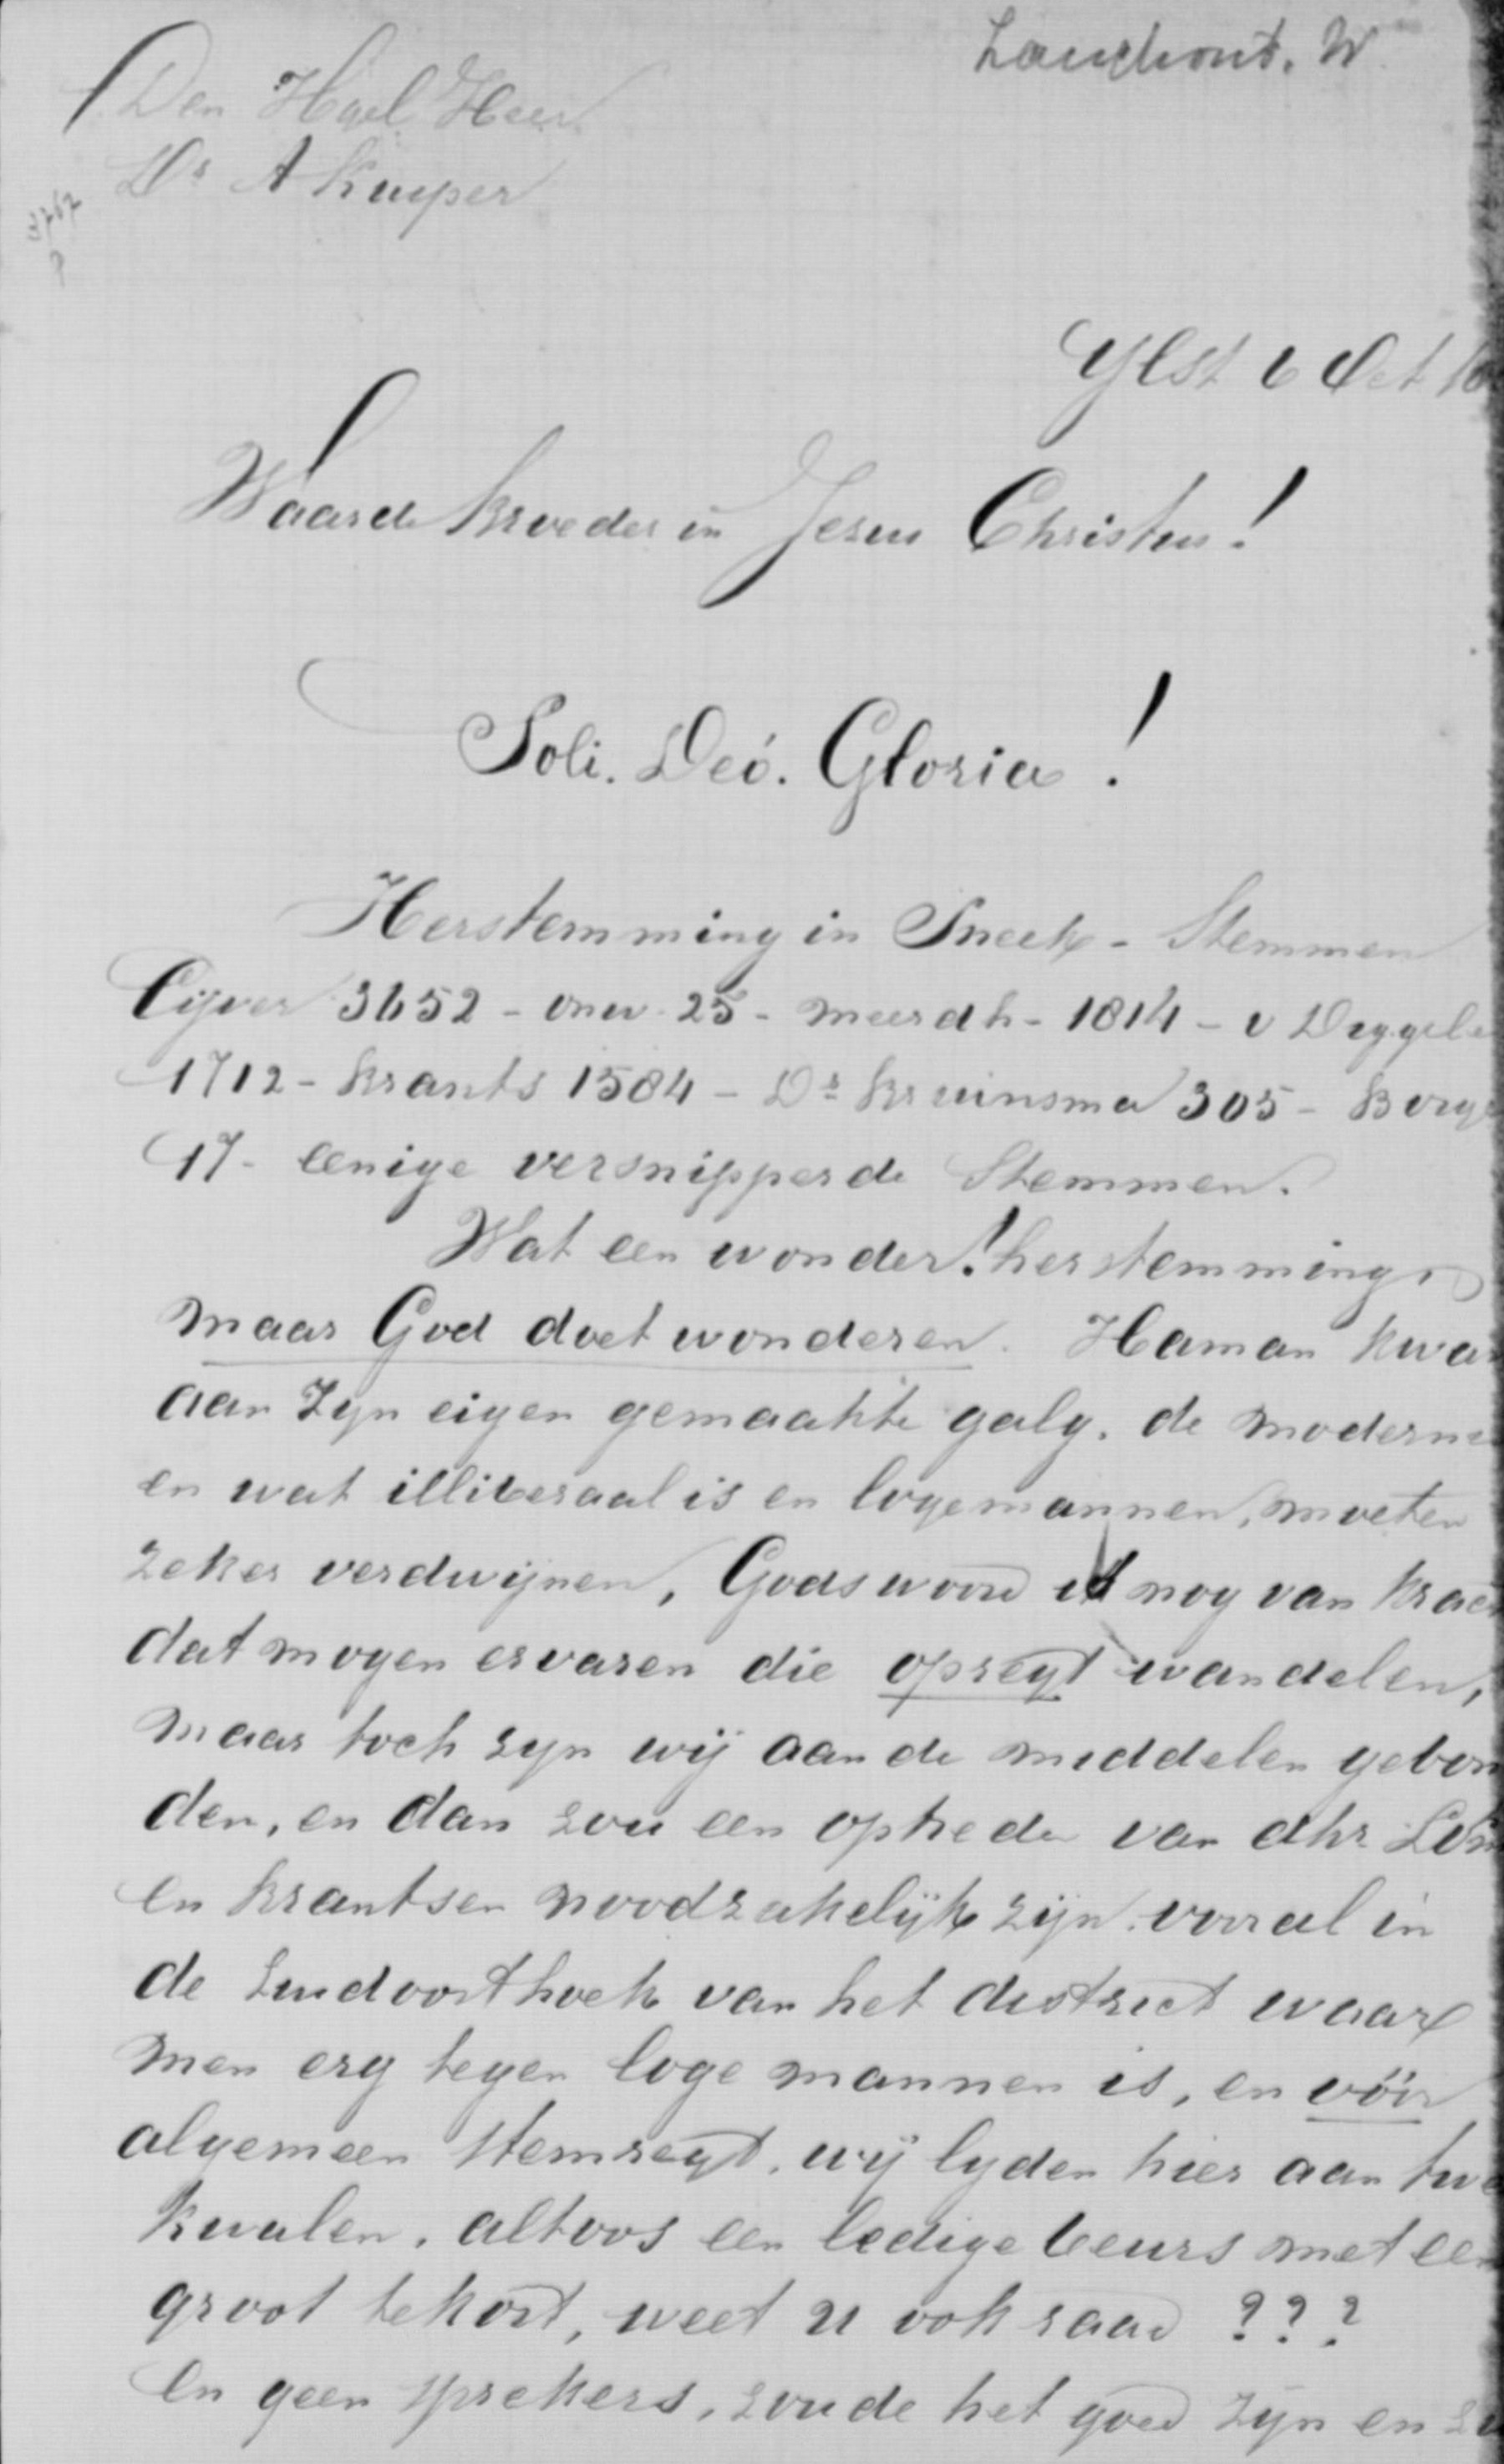 Langhout. W.
Den HgelHeer
Dr A Kuyper
3767
Ylst 6 Oct 18
Waarde broeder in Jesus Christus!
Soli. Deó. Gloria!
Herstemming in Sneek - Stemmen
Cijver 3652 - onw. 25 - meerdh - 1814 - v Deggele
1712 - Krants 1584 - Dr Bruinsma 305 - Borge
17 - eenige versnipperde Stemmen.
Wat een wonder! herstemming,
maar God doet wonderen. Haman kwam
aan Zyn eigen gemaakte galg. de moderne
en wat illiberaal is en logemannen, moeten
zeker verdwijnen, Gods woord is nog van krach
dat mogen ervaren die opregt wandelen,
maar toch zyn wij aan de middelen gebon
den, en dan zou een optreden van dhr Lom
en Krantsen noodzakelijk zijn. vooral in
de Zuidoosthoek van het district waar
men erg tegen loge mannen is, en vóór
algemeen stemregt. wij lyden hier aan twe
kwalen. altoos een ledige beurs met een
groot tekort, weet u ook raad ???
En geen sprekers, zoude het goed zyn en